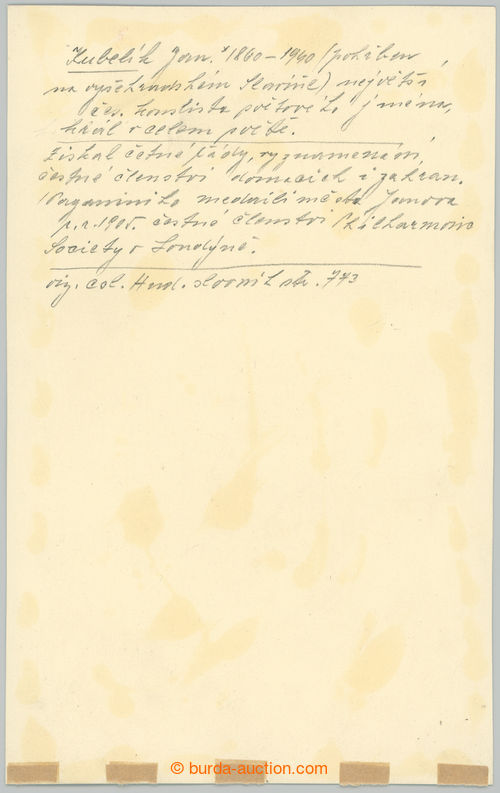 Kubelík Jan. *1860–1940 (pohřben
na vyšehradském Slavíně) největší
čes. houslista světového jména,
hrál v celém světě.
Získal četné řády, vyznamenání,
čestné členství domácích i zahran.
Paganiniho medaili města Janova
v r. 1905. čestné členství Philharmonic
Society v Londýně.
viz. čsl. Hud. slovník str. 773
© burda-auction.com